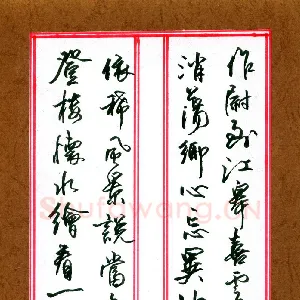 作尉到江皋喜雲
消蕩鄉心忘異
依稀風景說當
登樓懷水繪看一
Shufawang.CN